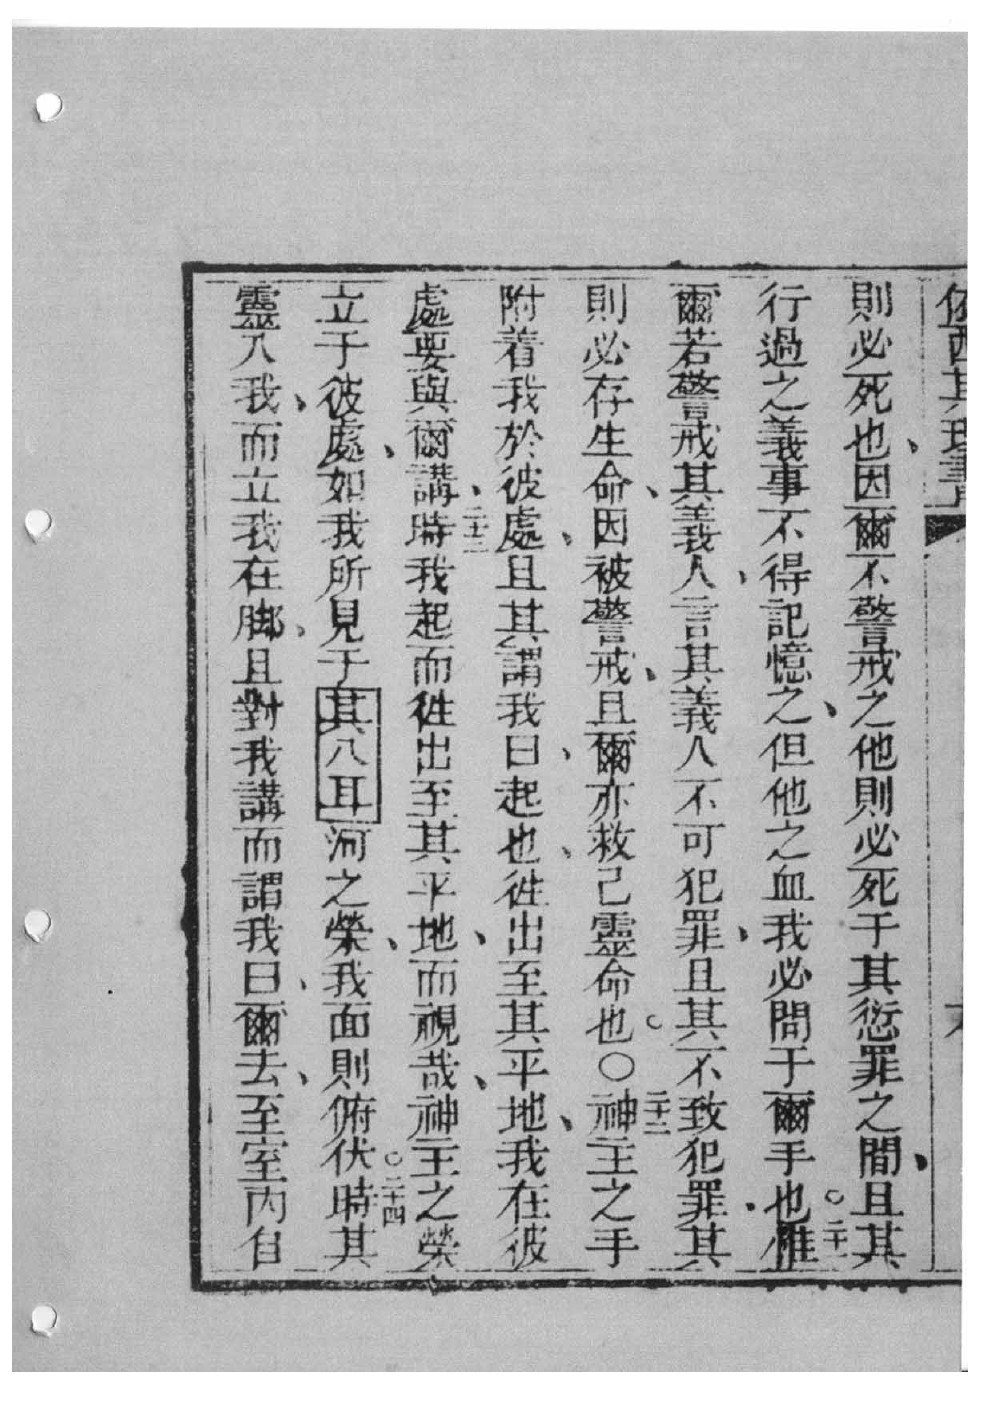 西其理書
則必死也、因爾不警戒之他則必死于其愆罪之間、且其
行過之義事不得記憶之、但他之血我必問于爾手也。二十一惟
爾若警戒其義人、言其義人不可犯罪、且其不致犯罪、其
則必存生命、因被警戒、且爾亦救己靈命也。○二十二神主之手
附着我於彼處、且其謂我曰、起也、徃出至其平地、我在彼
處要與爾講、二十三時我起而徃出至其平地、而視哉、神主之榮
立于彼處、如我所見于其八耳河之榮、我面則俯伏。二十四時其
靈入我、而立我在脚、且對我講而謂我曰、爾去、至室內自